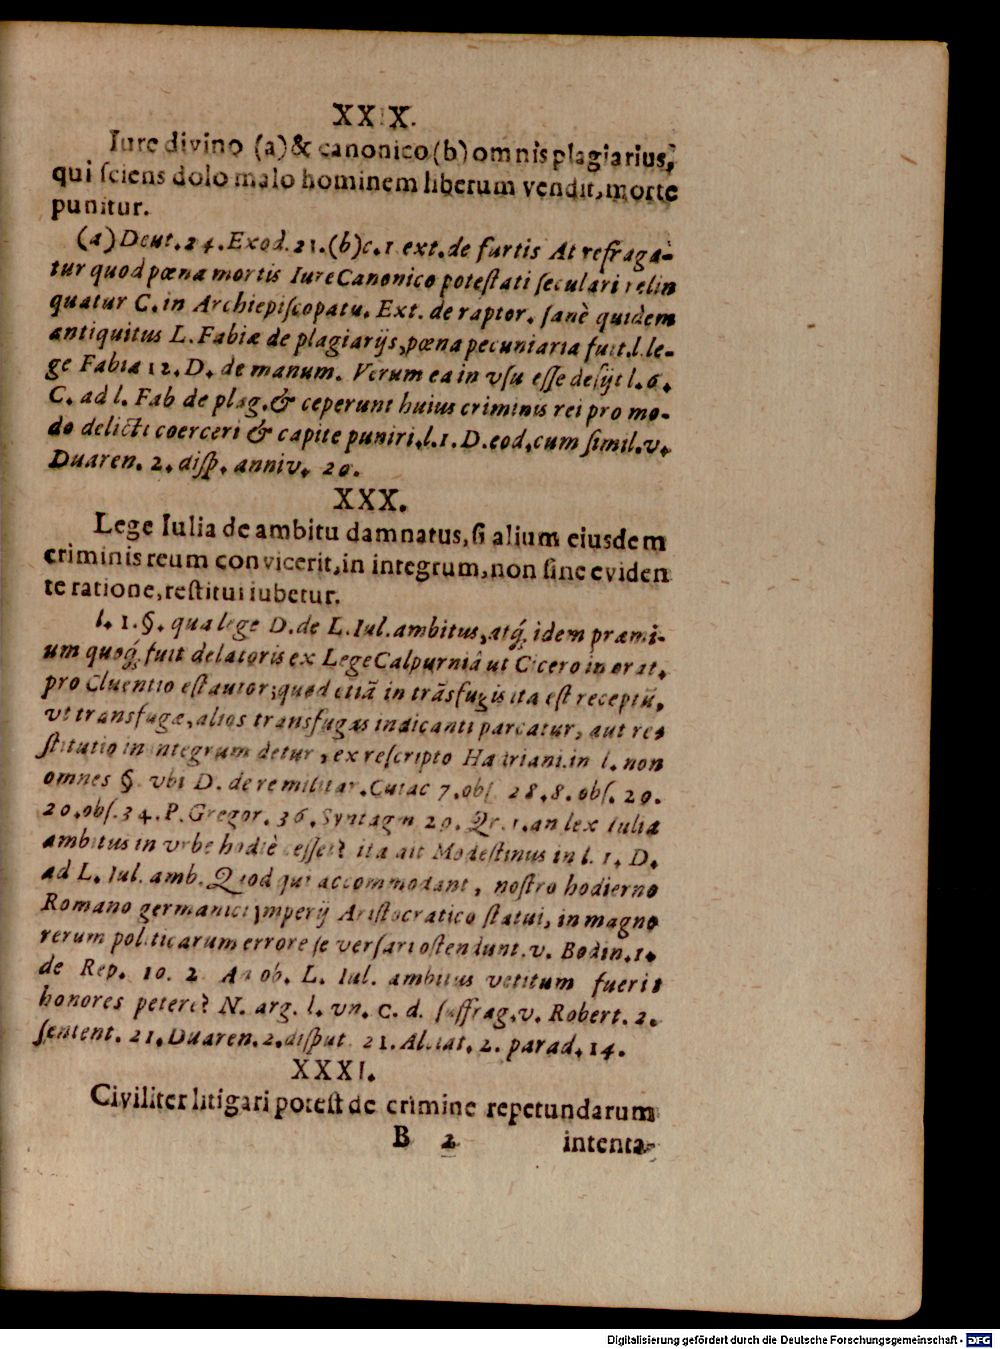 XXIX.
Iure divino (a) & canonico (b) omnis plagiarius,
qui ſciens dolo malo hominem liberum vendit, morte
punitur.
(a) Deut. 24. Exod. 21. (b) c. 1 ext. de furtis At refraga-
tur quod pœna mortis Iure Canonico poteſtati ſeculari relin
quatur C. in Archiepiſcopatu. Ext. de raptor. ſanè quidem
antiquitus L. Fabiæ de plagiarijs, pœna pecuniaria fuit. l. le-
ge Fabia 12. D. de manum. Verum ea in vſu eſſe deſijt l. 6.
C. ad l. Fab de plag. & ceperunt huius criminis rei pro mo-
do delicti coerceri & capite puniri, l. 1. D. eod. cum ſimil. v.
Duaren. 2. diſp. anniv. 20.
XXX.
Lege Iulia de ambitu damnatus, ſi alium eiusdem
criminis reum convicerit, in integrum, non ſine eviden
te ratione, reſtitui iubetur.
l. 1. §. qua lege D. de L. Iul. ambitus, atq́. idem præmi-
um quoq́. fuit delatoris ex Lege Calpurniâ ut Cicero in orat.
pro Cluentio eſt autor; quod etiã in trãsfugis ita eſt receptũ,
vt transfugæ, alios transfugas indicanti parcatur, aut re-
ſtitutio in integrum detur, ex reſcripto Hadriani. in l. non
omnes §. vbi D. de re militar. Cuiac 7. obſ. 28. 8. obſ. 29.
20. obſ. 34. P. Gregor. 36. Syntagm 29. Qr. 1. an lex Iulia
ambitus in vrbe hodiè ceſſet? ita ait Modeſtinus in l. 1. D.
ad L. Iul. amb. Quod qui accommodant, noſtro hodierno
Romano germanici jmperij Ariſtocratico ſtatui, in magno
rerum politicarum errore ſe verſari oſtendunt. v. Bodin. 1.
de Rep. 10. 2 An ob. L. Iul. ambitus vetitum fuerit
honores petere? N. arg. l. vn. C. d. ſuffrag. v. Robert. 2.
ſentent. 21. Duaren. 2. diſput. 21. Alciat. 2. parad. 14.
XXXI.
Civiliter litigari poteſt de crimine repetundarum
B 2 intenta-
Digitalisierung gefördert durch die Deutsche Forschungsgemeinschaft - DFG